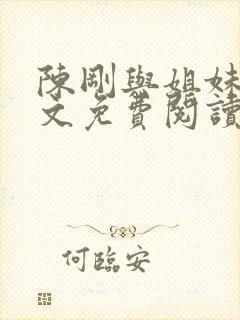 陳剛與姐妹
文免費閱讀
何臨安